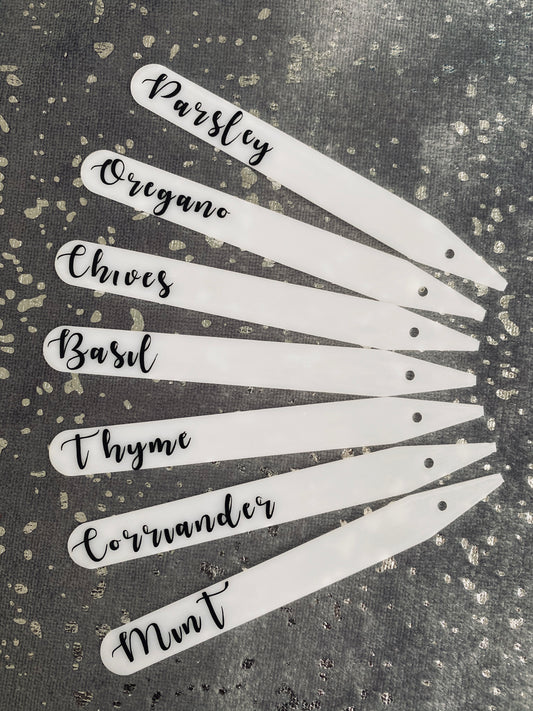 Parsley
Oregano
Chives
Basil
Thyme
Corriander
Mint